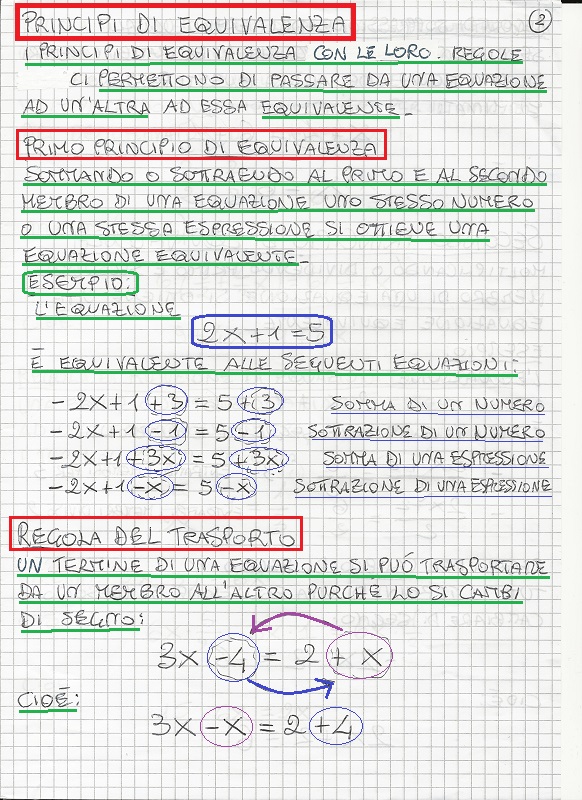 PRINCIPI DI EQUIVALENZA
2
I PRINCIPI DI EQUIVALENZA CON LE LORO REGOLE
CI PERMETTONO DI PASSARE DA UNA EQUAZIONE
AD UN'ALTRA AD ESSA EQUIVALENTE_
PRIMO PRINCIPIO DI EQUIVALENZA
SOMMANDO O SOTTRAENDO AL PRIMO E AL SECONDO
MEMBRO DI UNA EQUAZIONE UNO STESSO NUMERO
O UNA STESSA ESPRESSIONE SI OTTIENE UNA
EQUAZIONE EQUIVALENTE_
ESEMPIO:
L'EQUAZIONE
2x+1=5
È EQUIVALENTE ALLE SEGUENTI EQUAZIONI:
- 2x+1+3 = 5+3 SOMMA DI UN NUMERO
- 2x+1-1 = 5-1 SOTTRAZIONE DI UN NUMERO
- 2x+1+3x = 5+3x SOMMA DI UNA ESPRESSIONE
- 2x+1-x = 5-x SOTTRAZIONE DI UNA ESPRESSIONE
REGOLA DEL TRASPORTO
UN TERMINE DI UNA EQUAZIONE SI PUÓ TRASPORTARE
DA UN MEMBRO ALL'ALTRO PURCHÉ LO SI CAMBI
DI SEGNO:
3x-4 = 2+x
CIOÈ:
3x-x = 2+4